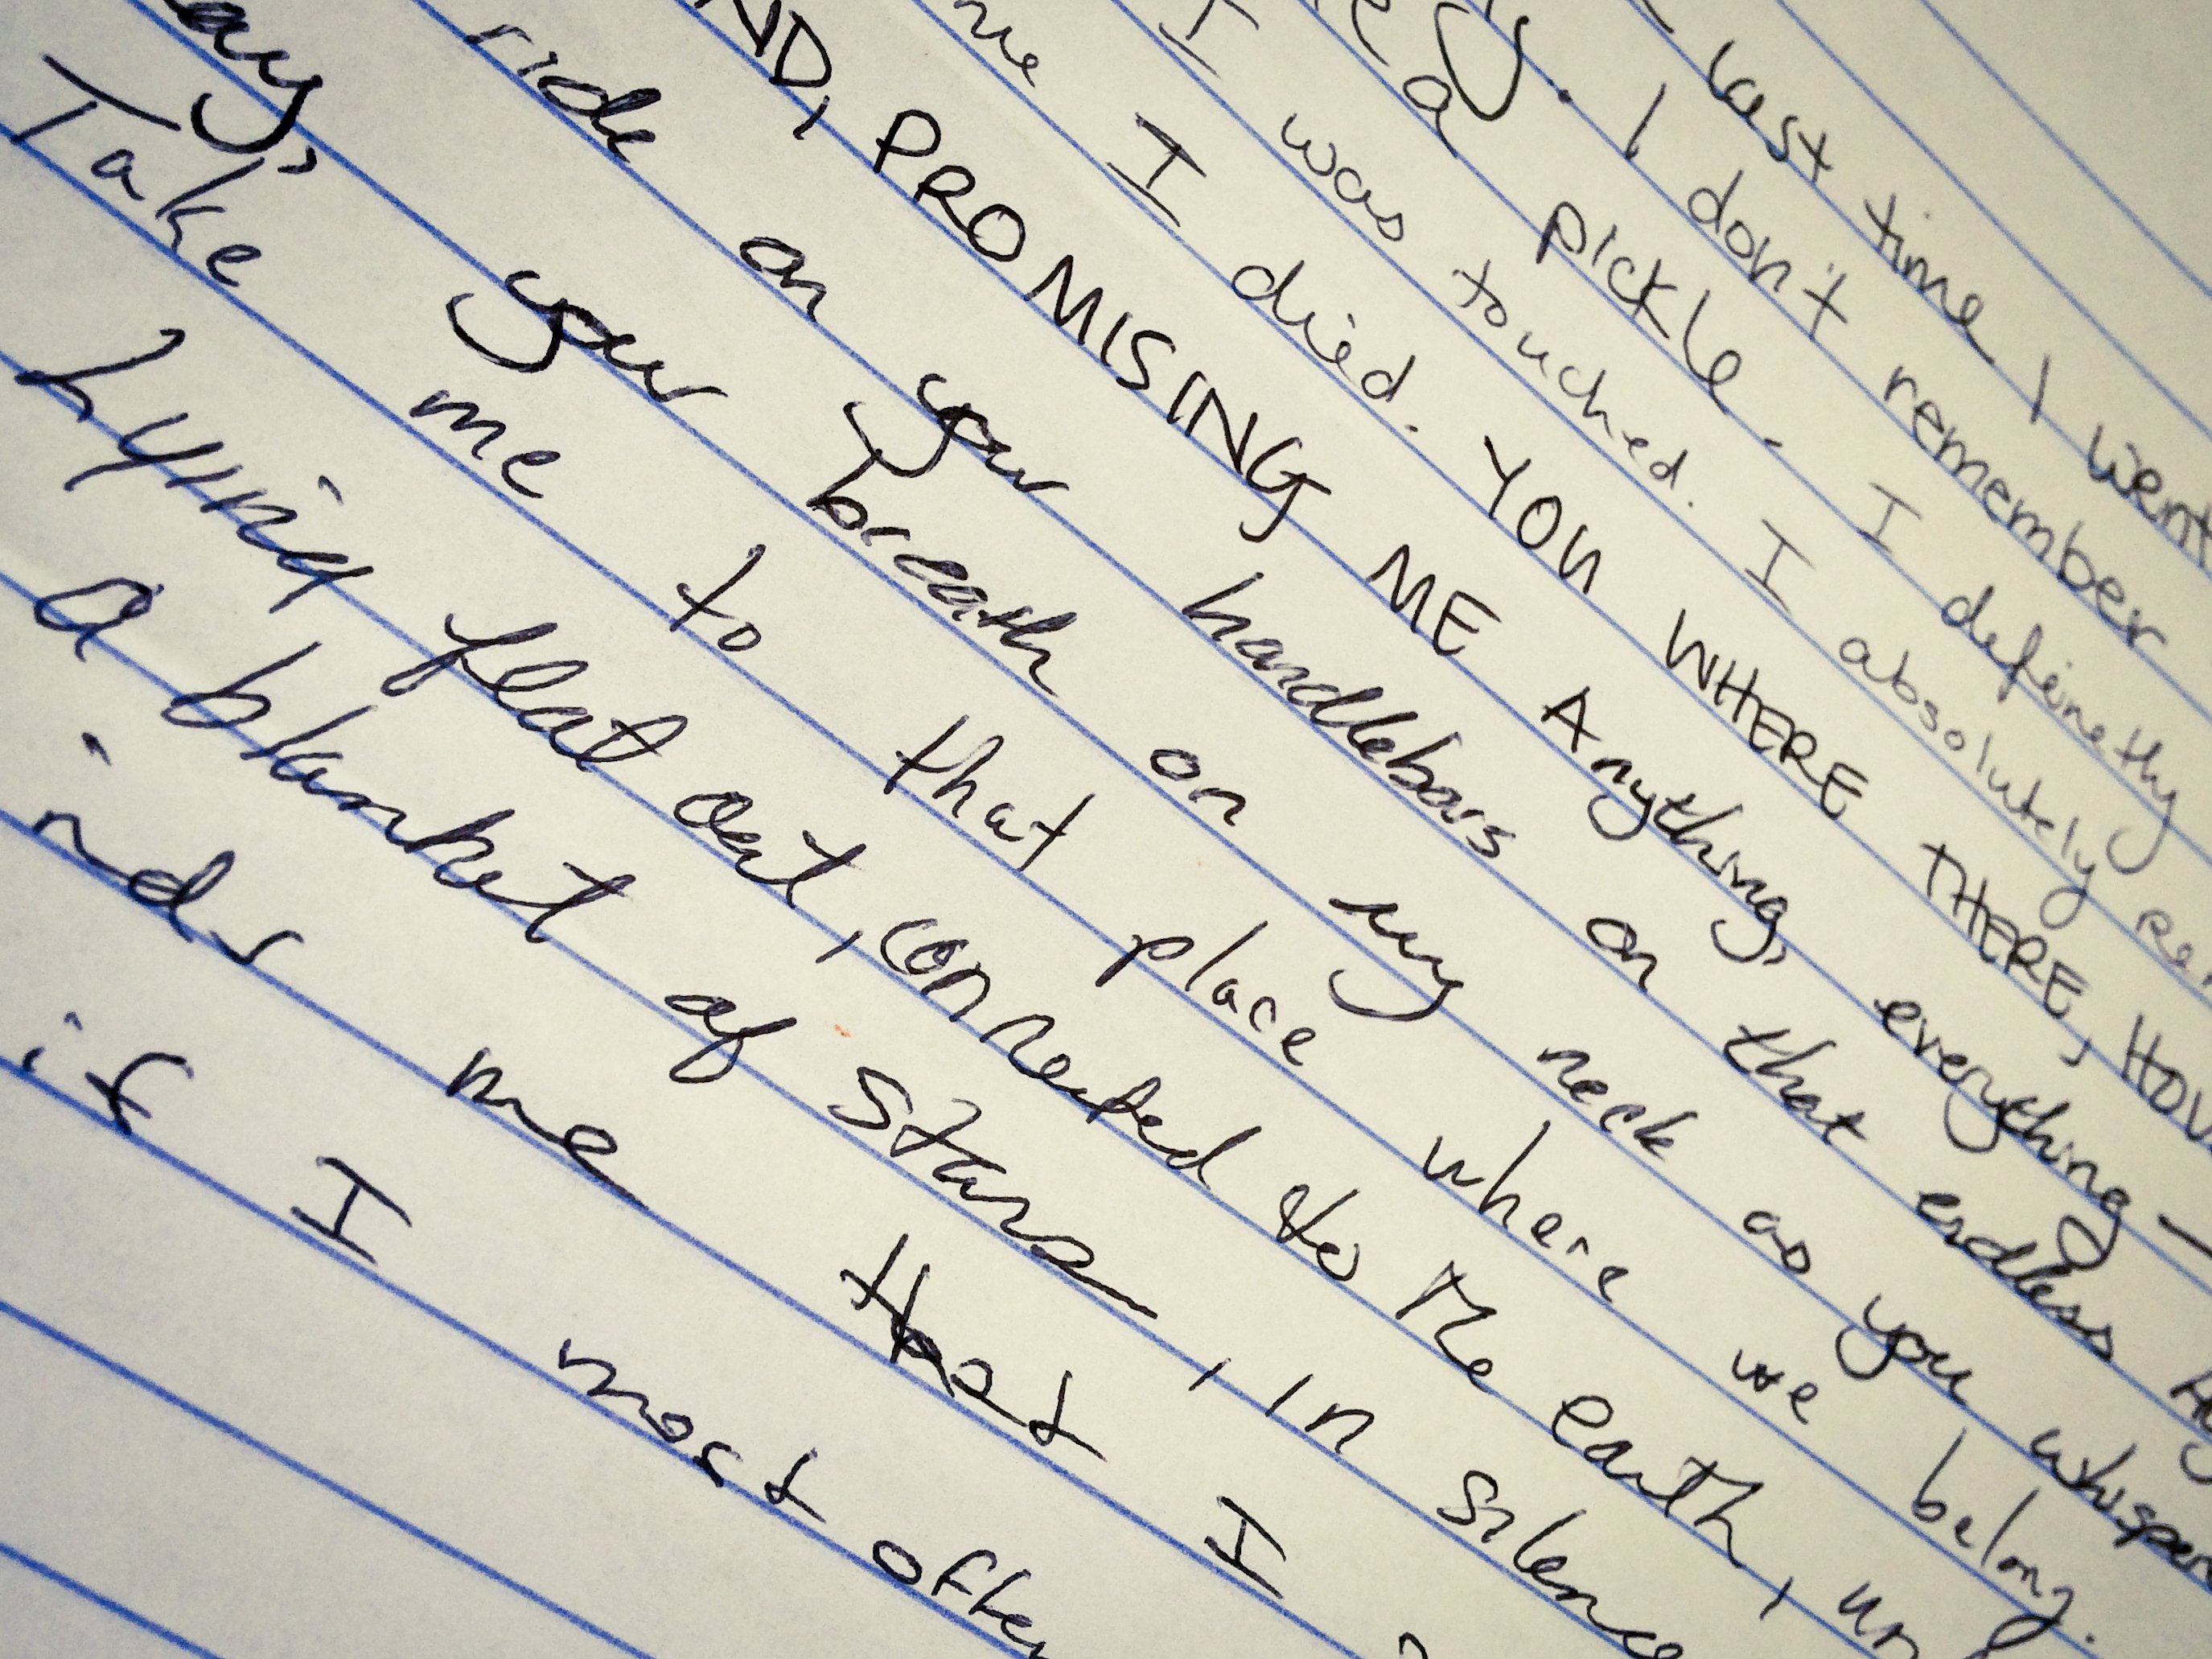 last time I went
. I don't remember
a pickle. I definetly
I was touched. I absolutely
me I died. YOU WHERE THERE,
PROMISING ME Anything, everything—
ride on your handlebars on that endless
your breath on my neck as you whisper
Take me to that place where we belong.
Lying flat out, connected to the earth,
a blanket of stars, in silence
me that I
if I most often